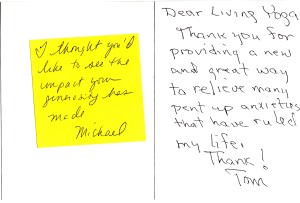 I thought you'd
like to see the
impact your
generosity has
made
Michael
Dear Living Yoga
Thank you for
providing a new
and great way
to relieve many
pent up anxieties
that have ruled
my life.
Thank!
Tom